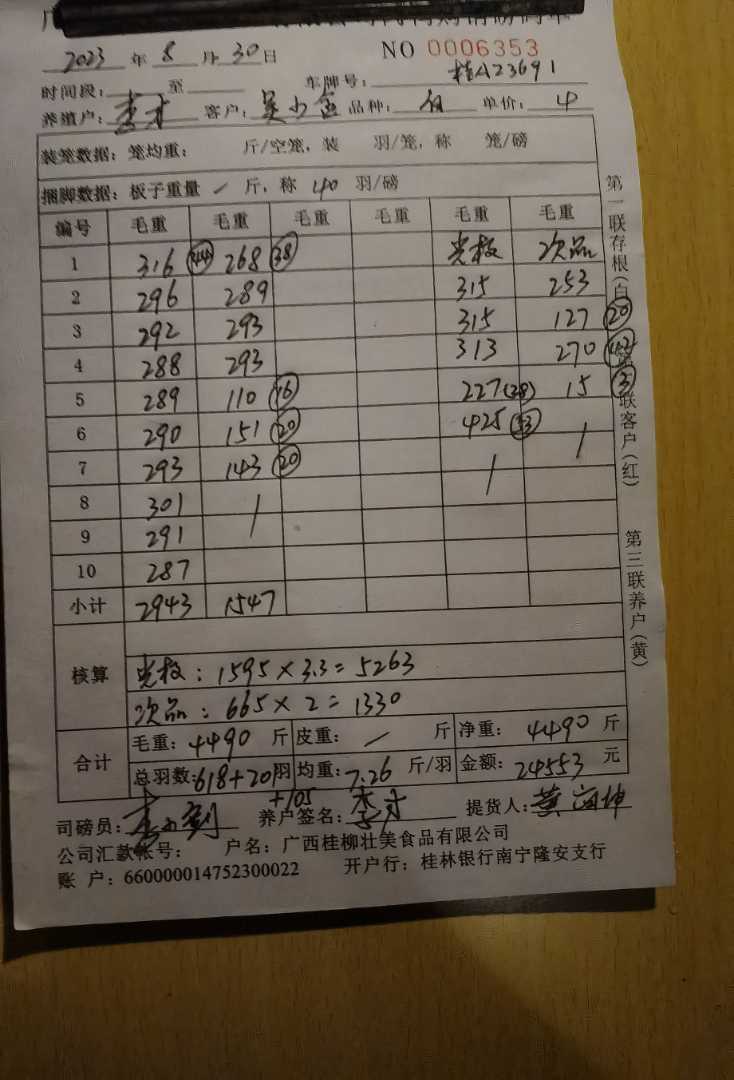 2023 年 8 月 30 日 NO 0006353
时间段: 至 车牌号: 桂A23691
养殖户: 李才 客户: 吴少金 品种: 白 单价: 4
装笼数据: 笼均重: 斤/空笼, 装 羽/笼, 称 笼/磅
捆脚数据: 板子重量 / 斤, 称 40 羽/磅
编号 毛重 毛重 毛重 毛重 毛重 毛重
1 316 (44) 268 (38) 光板 次品
2 296 289 315 253
3 292 293 315 127 (20)
4 288 293 313 270 (42)
5 289 110 (16) 227 (28) 15 (3)
6 290 151 (20) 425 (53) /
7 293 143 (20) /
8 301 /
9 291
10 287
小计 2943 1547
核算
光板: 1595 × 3.3 = 5263
次品: 665 × 2 = 1330
合计 毛重: 4490 斤 皮重: / 斤 净重: 4490 斤
总羽数: 618+201 羽 均重: 7.26 斤/羽 金额: 24553 元
+105
司磅员: 养户签名: 李才 提货人: 黄
公司汇款帐号: 户名: 广西桂柳壮美食品有限公司
账 户: 660000014752300022 开户行: 桂林银行南宁隆安支行
第一联存根(白)
联客户(红)
第三联养户(黄)